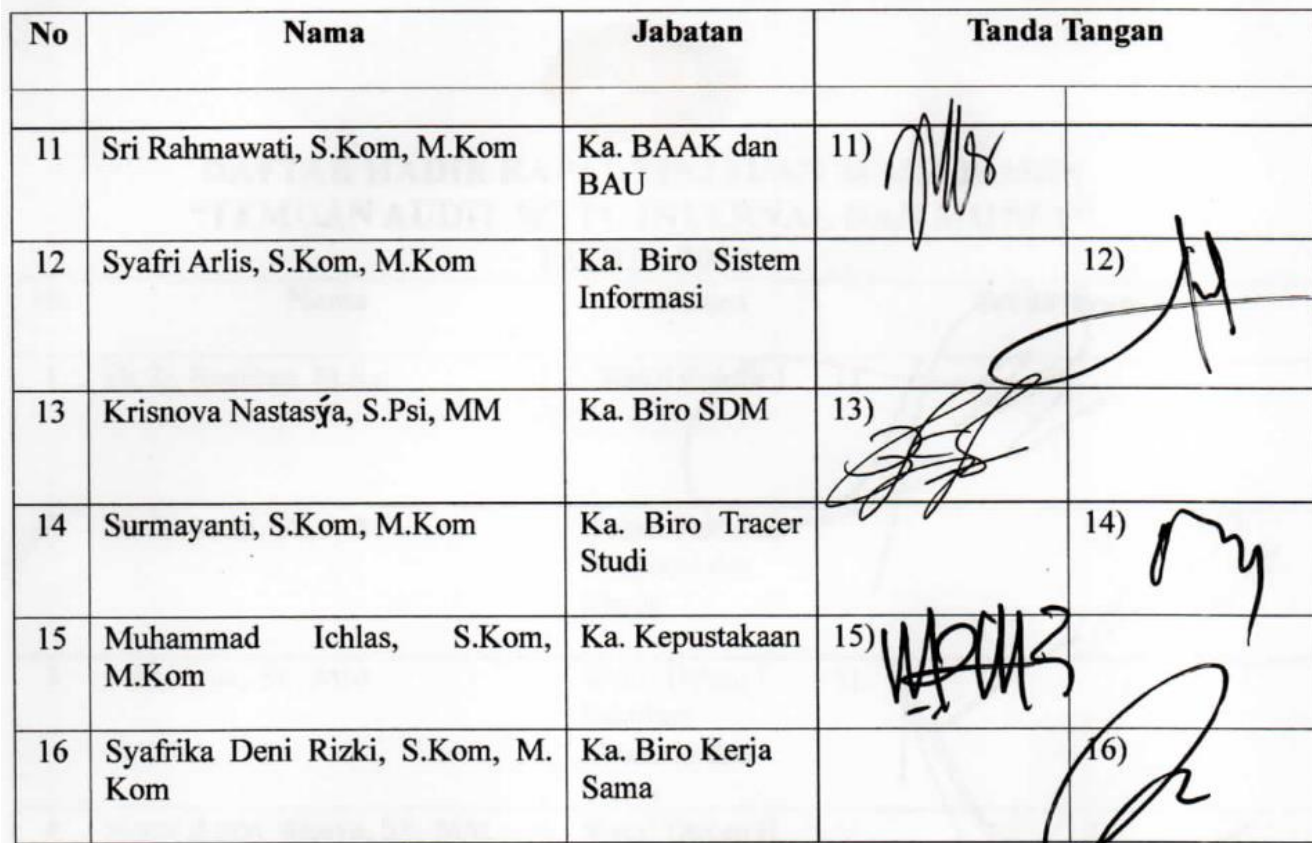 No Nama Jabatan Tanda Tangan
11 Sri Rahmawati, S.Kom, M.Kom Ka. BAAK dan 11)
BAU
12 Syafri Arlis, S.Kom, M.Kom Ka. Biro Sistem 12)
Informasi
13 Krisnova Nastasýa, S.Psi, MM Ka. Biro SDM 13)
14 Surmayanti, S.Kom, M.Kom Ka. Biro Tracer 14)
Studi
15 Muhammad Ichlas, S.Kom, Ka. Kepustakaan 15)
M.Kom
16 Syafrika Deni Rizki, S.Kom, M. Ka. Biro Kerja 16)
Kom Sama